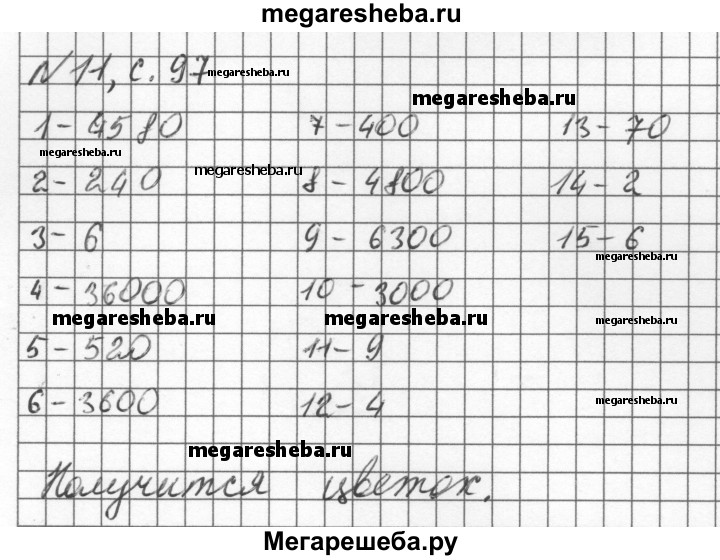 megaresheba.ru
№11, с. 97 megaresheba.ru
megaresheba.ru
1 - 4580 7 - 400 13 - 70
megaresheba.ru megaresheba.ru
2 - 240 8 - 4800 14 - 2
3 - 6 9 - 6300 15 - 6
megaresheba.ru
4 - 36000 10 - 3000
megaresheba.ru megaresheba.ru megaresheba.ru
5 - 520 11 - 9
6 - 3600 12 - 4 megaresheba.ru
megaresheba.ru
Получится цветок.
Мегарешеба.ру